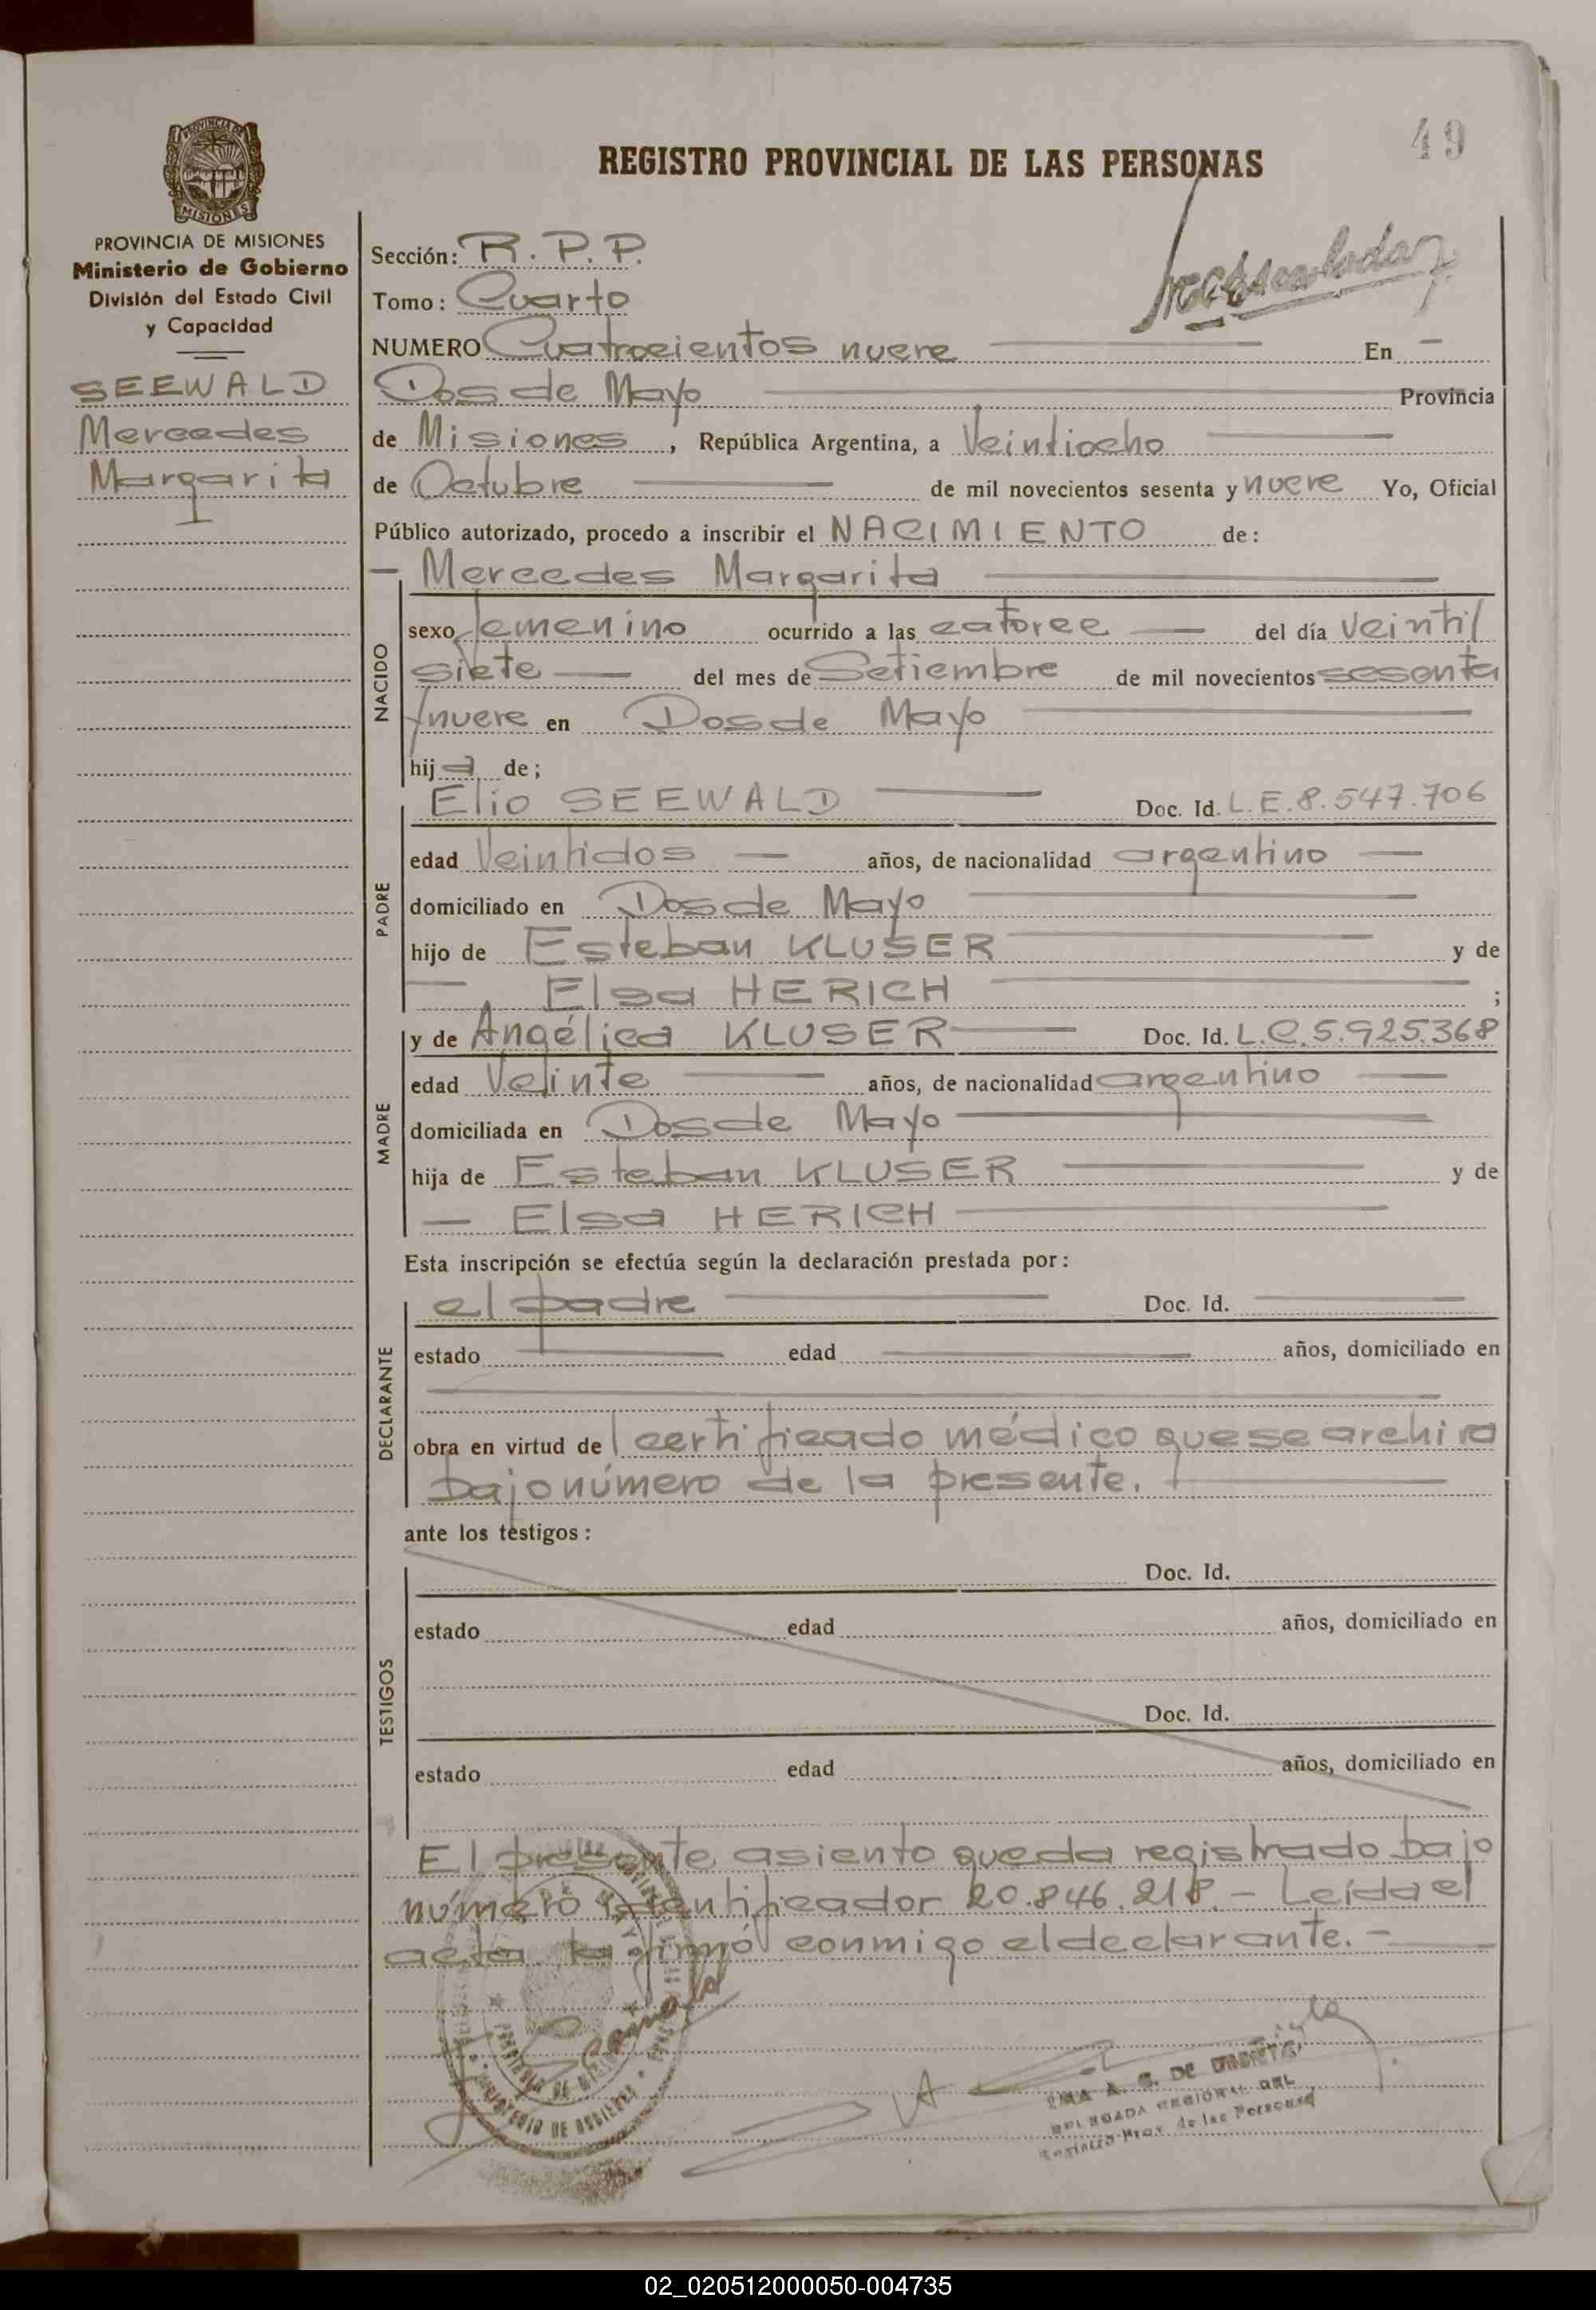 49
REGISTRO PROVINCIAL DE LAS PERSONAS
PROVINCIA DE MISIONES
Ministerio de Gobierno
División del Estado Civil
y Capacidad
SEEWALD
Mercedes
Margarita
Sección: R. P. P.
Tomo: Cuarto
NUMERO Cuatrocientos nueve — En —
Dos de Mayo — Provincia
de Misiones, República Argentina, a Veintiocho —
de Octubre — de mil novecientos sesenta y nueve Yo, Oficial
Público autorizado, procedo a inscribir el NACIMIENTO de:
— Mercedes Margarita —
NACIDO
sexo femenino ocurrido a las catorce — del día Veinti/
siete — del mes de Setiembre de mil novecientos sesenta
/nueve en Dos de Mayo —
hija de;
PADRE
Elio SEEWALD — Doc. Id. L.E.8.547.706
edad Veintidos — años, de nacionalidad argentino —
domiciliado en Dos de Mayo —
hijo de Esteban KLUSER — y de
— Elsa HERICH — ;
MADRE
y de Angélica KLUSER — Doc. Id. L.C.5.925.368
edad Veinte — años, de nacionalidad argentino —
domiciliada en Dos de Mayo —
hija de Esteban KLUSER — y de
— Elsa HERICH —
Esta inscripción se efectúa según la declaración prestada por:
DECLARANTE
el padre — Doc. Id. —
estado — edad — años, domiciliado en
—
obra en virtud de l certificado médico que se archiva
bajo número de la presente. —
ante los testigos:
TESTIGOS
Doc. Id.
estado edad años, domiciliado en
Doc. Id.
estado edad años, domiciliado en
El presente asiento queda registrado bajo
número identificador 20.846.218. — Leída el
acta la firmó conmigo el declarante. —
DELEGADA REGIONAL DEL
Registro Prov. de las Personas
02_020512000050-004735